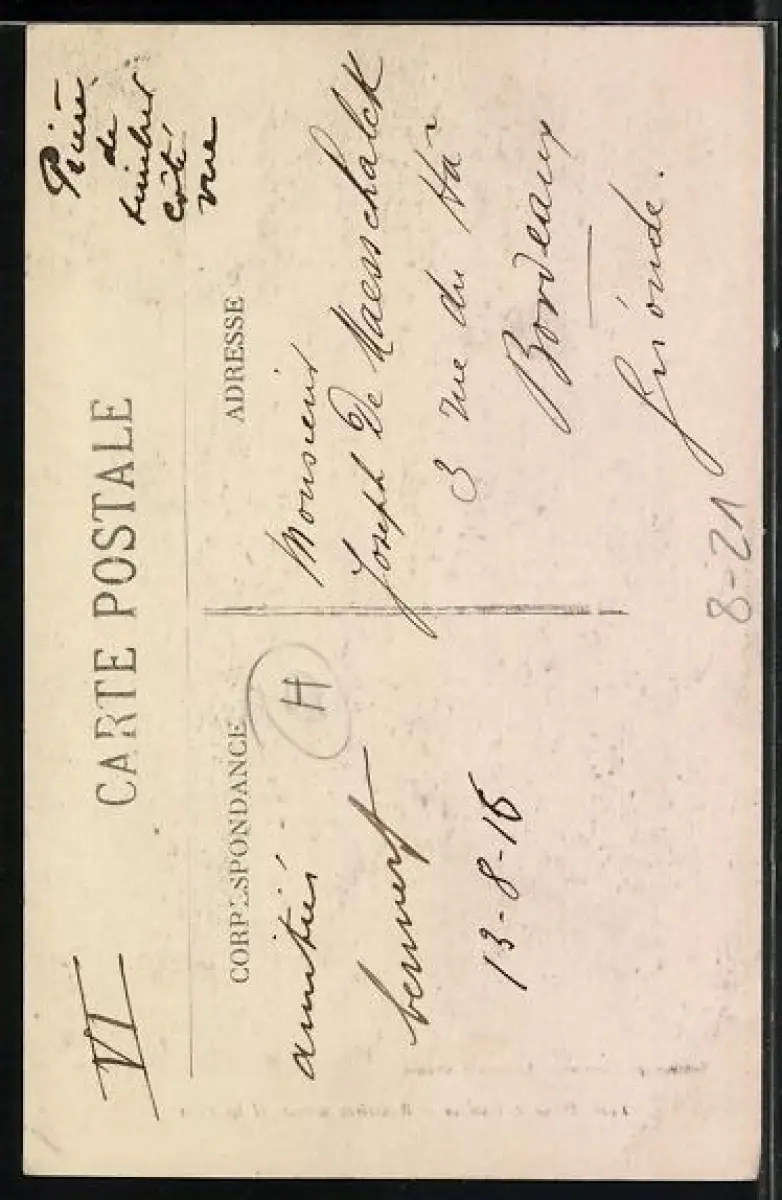 VI
CARTE POSTALE
Prière
de
timbrer
côté
vue
CORRESPONDANCE
amitiés
13-8-15
H
ADRESSE
Monsieur
Joseph De Maesschalck
3 rue du Hâ
Bordeaux
Gironde.
8-21